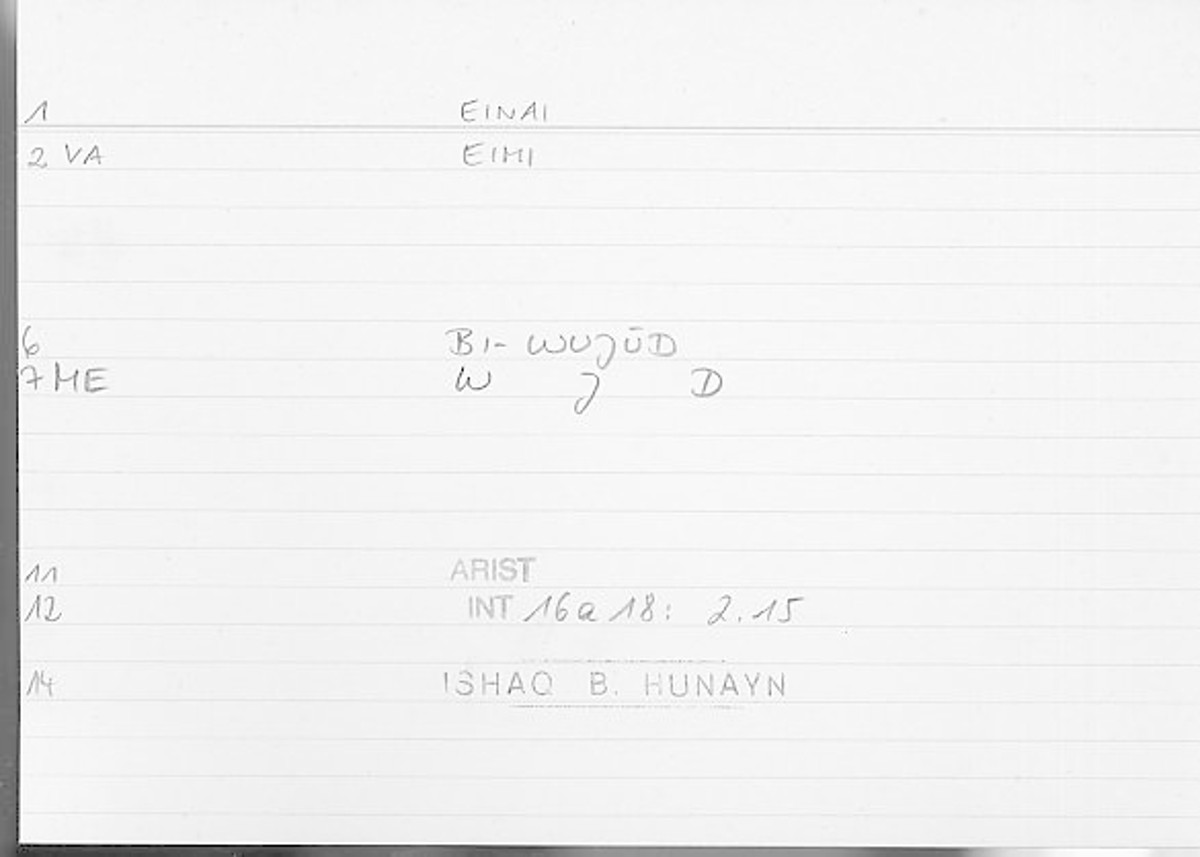 1 EINAI
2 VA EIMI
6 BI- WUJŪD
7 ME W J D
11 ARIST
12 INT 16a18: 2.15
14 ISHAQ B. HUNAYN